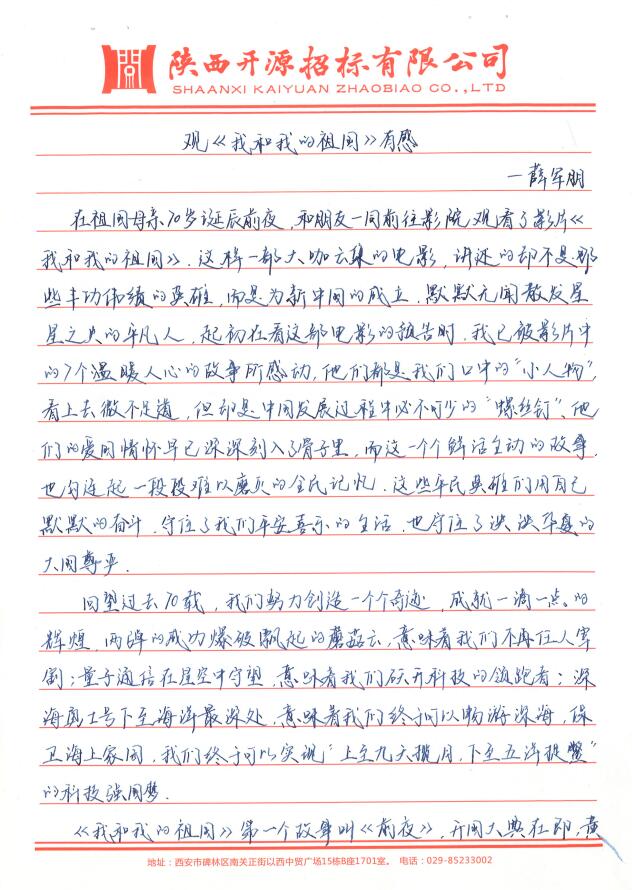 陕西开源招标有限公司
SHAANXI KAIYUAN ZHAOBIAO CO.,LTD
观《我和我的祖国》有感
—薛军朋
在祖国母亲70岁诞辰前夜，和朋友一同前往影院观看了影片《
我和我的祖国》。这样一部大咖云集的电影，讲述的却不是那
些丰功伟绩的英雄，而是为新中国的成立，默默无闻散发星
星之火的平凡人，起初在看这部电影的预告时，我已被影片中
的7个温暖人心的故事所感动，他们都是我们口中的“小人物”，
看上去微不足道，但却是中国发展过程中必不可少的“螺丝钉”、他
们的爱国情怀早已深深刻入了骨子里，而这一个个鲜活生动的故事，
也勾连起一段段难以磨灭的全民记忆，这些平民英雄们用自己
默默的奋斗，守住了我们平安喜乐的生活，也守住了泱泱华夏的
大国尊严。
回望过去70载，我们努力创造一个个奇迹，成就一滴一点的
辉煌，两弹的成功爆破飘起的蘑菇云，意味着我们不再任人宰
割；量子通信在星空中守望，意味着我们跃升科技的领跑者；深
海勇士号下至海洋最深处，意味着我们终于可以畅游深海，保
卫海上家国，我们终于可以实现“上至九天揽月，下至五洋捉鳖”
的科技强国梦。
《我和我的祖国》第一个故事叫《前夜》，开国大典在即，黄
地址：西安市碑林区南关正街以西中贸广场15栋B座1701室。 电话：029-85233002